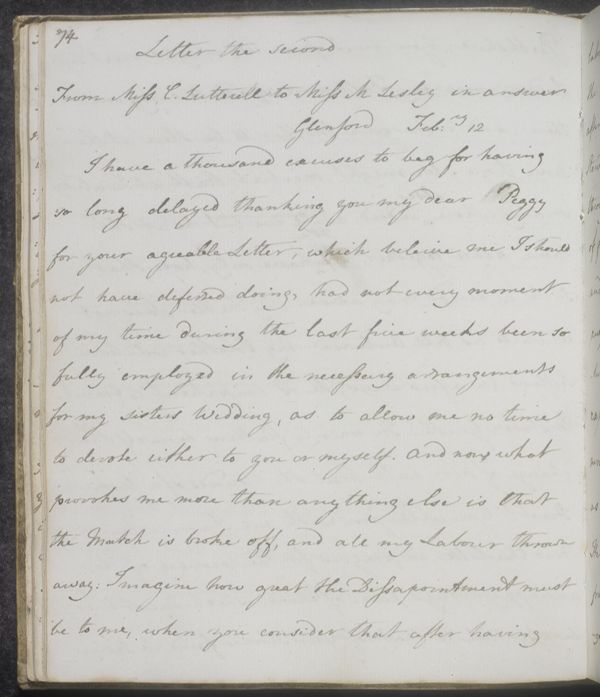 74
Letter the second
From Miss C. Lutterell to Miss M Lesley in answer
Glenford Feb:ry 12
I have a thousand excuses to beg for having
so long delayed thanking you my dear Peggy
for your agreable Letter, which beleive me I should
not have deferred doing, had not every moment
of my time during the last five weeks been so
fully employed in the necessary arrangements
for my sisters Wedding, as to allow me no time
to devote either to you or myself. And now what
provokes me more than anything else is that
the Match is broke off, and all my Labour thrown
away: Imagine how great the Dissapointment must
be to me, when you consider that after having